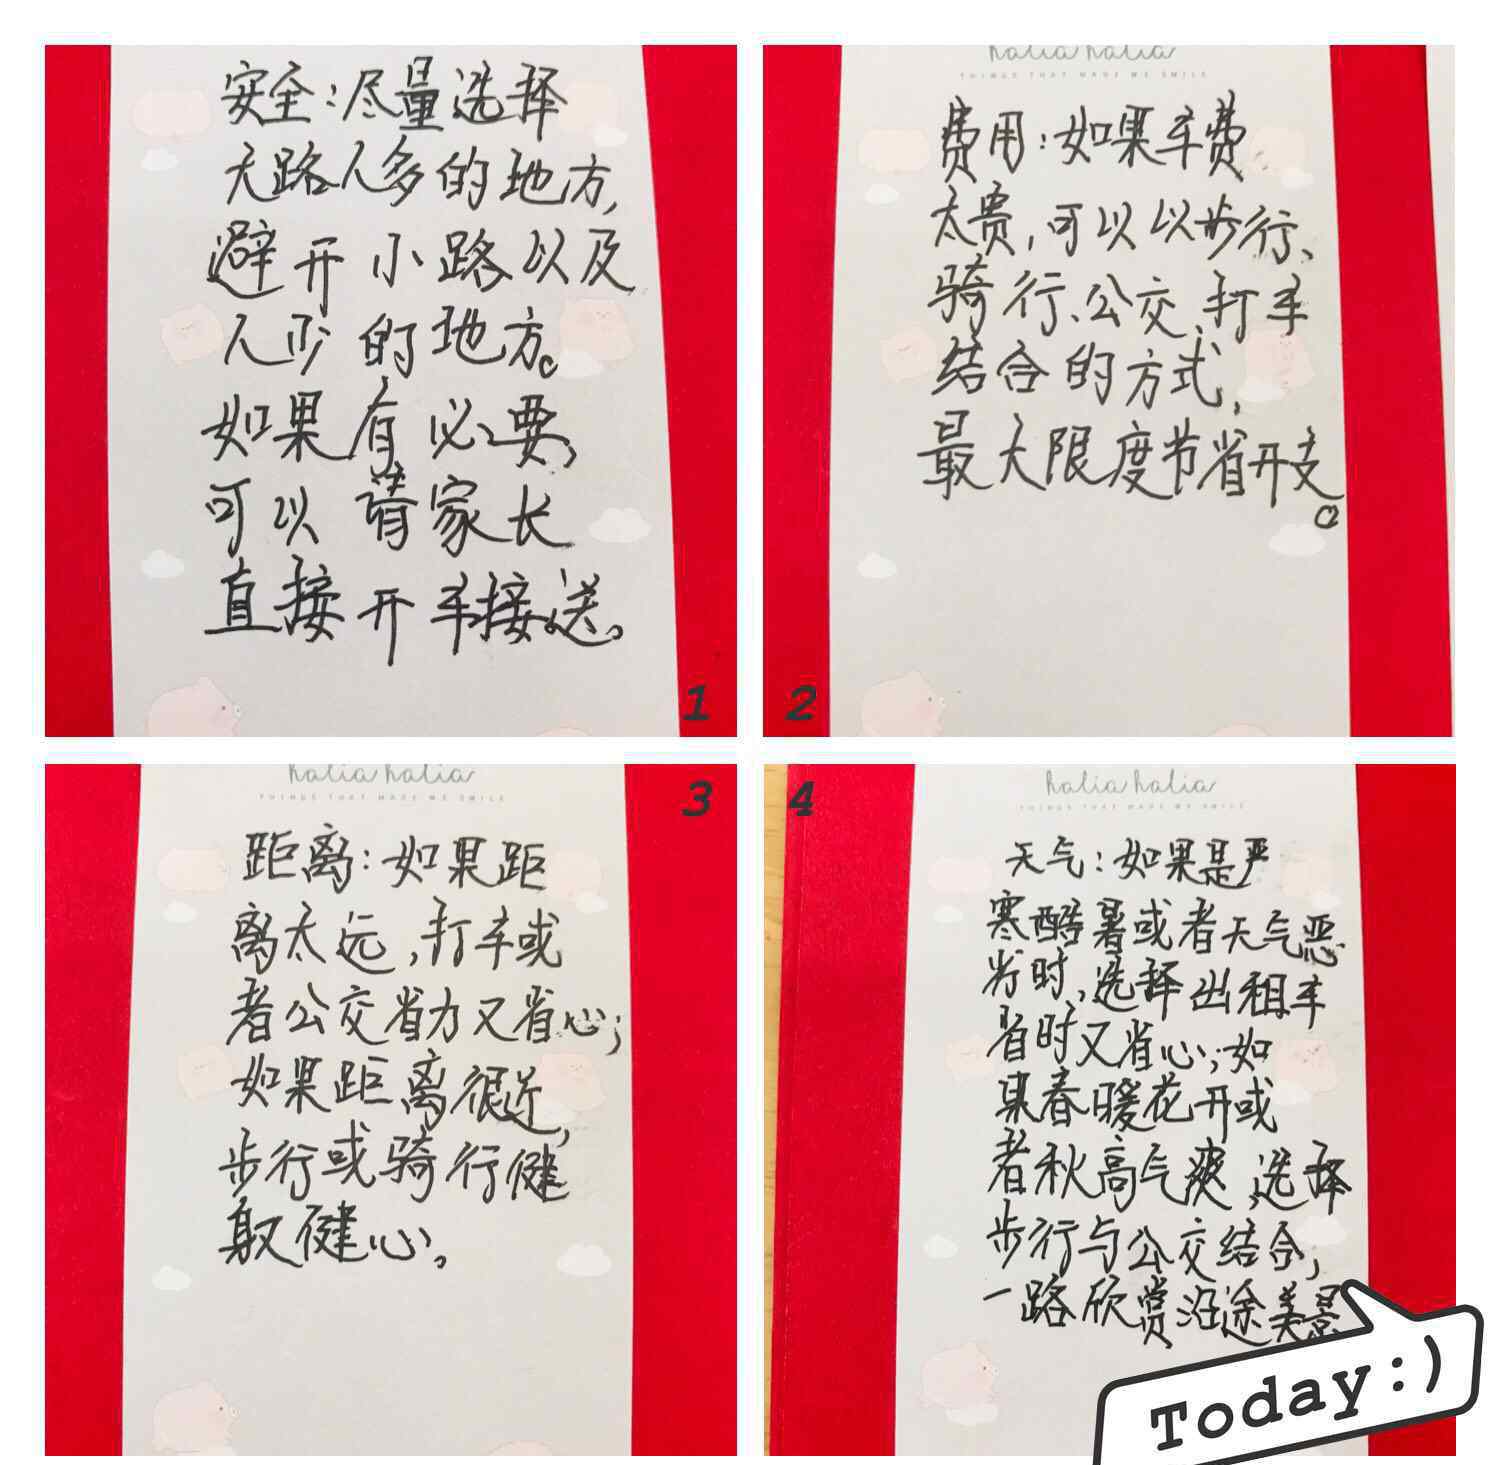 安全：尽量选择
大路人多的地方，
避开小路以及
人少的地方。
如果有必要，
可以请家长
直接开车接送。
1
halia halia
THINGS THAT MADE ME SMILE
费用：如果车费
太贵，可以以步行、
骑行、公交、打车
结合的方式，
最大限度节省开支。
2
halia halia
THINGS THAT MADE ME SMILE
3
距离：如果距
离太远，打车或
者公交省力又省心；
如果距离很近，
步行或骑行健
身又健心。
4
halia halia
THINGS THAT MADE ME SMILE
天气：如果是严
寒酷暑或者天气恶
劣时，选择出租车
省时又省心；如
果春暖花开或
者秋高气爽，选择
步行与公交结合，
一路欣赏沿途美景
Today:)